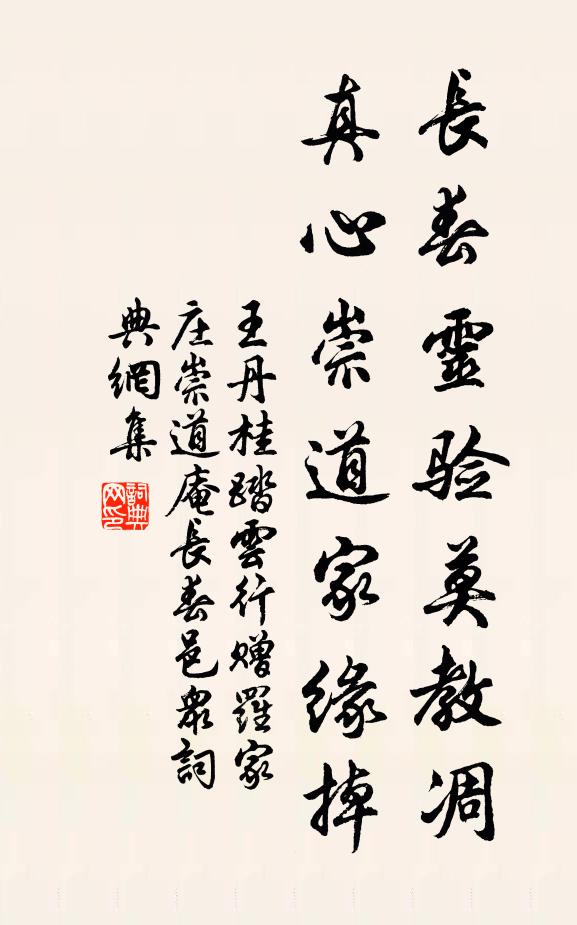 長春靈验莫教凋
真心崇道家緣掉
王丹桂踏雲行贈羅家
庄崇道庵長春邑眾詞
典網集
詞典网印